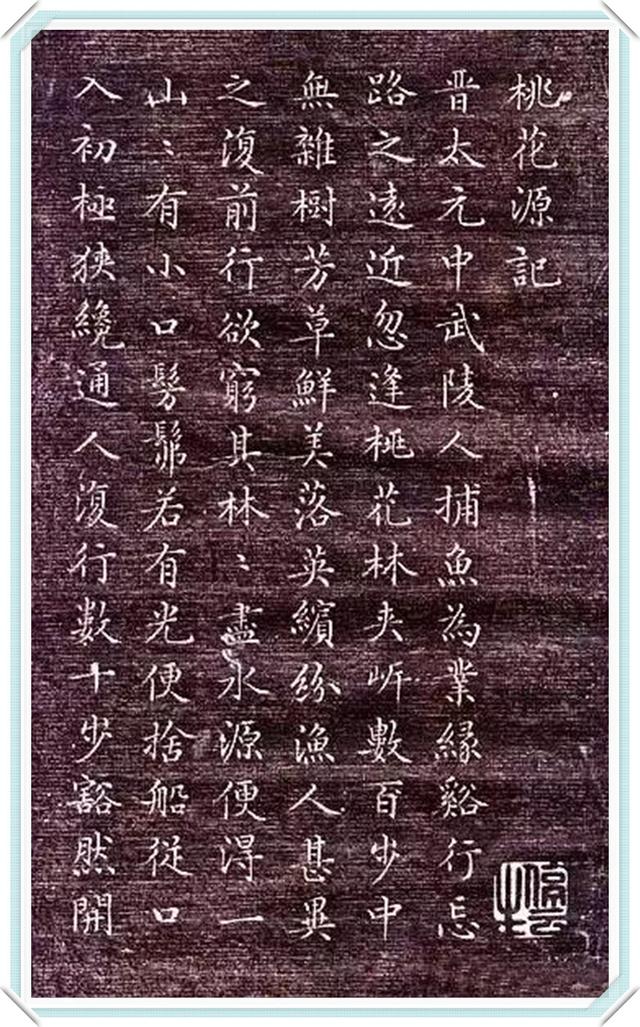 桃花源記
晋太元中武陵人捕魚為業緣谿行忘
路之遠近忽逢桃花林夹岸數百步中
無雜樹芳草鮮美落英繽紛漁人甚異
之復前行欲窮其林〻盡水源便得一
山〻有小口髣髴若有光便捨船從口
入初極狹纔通人復行數十步豁然開